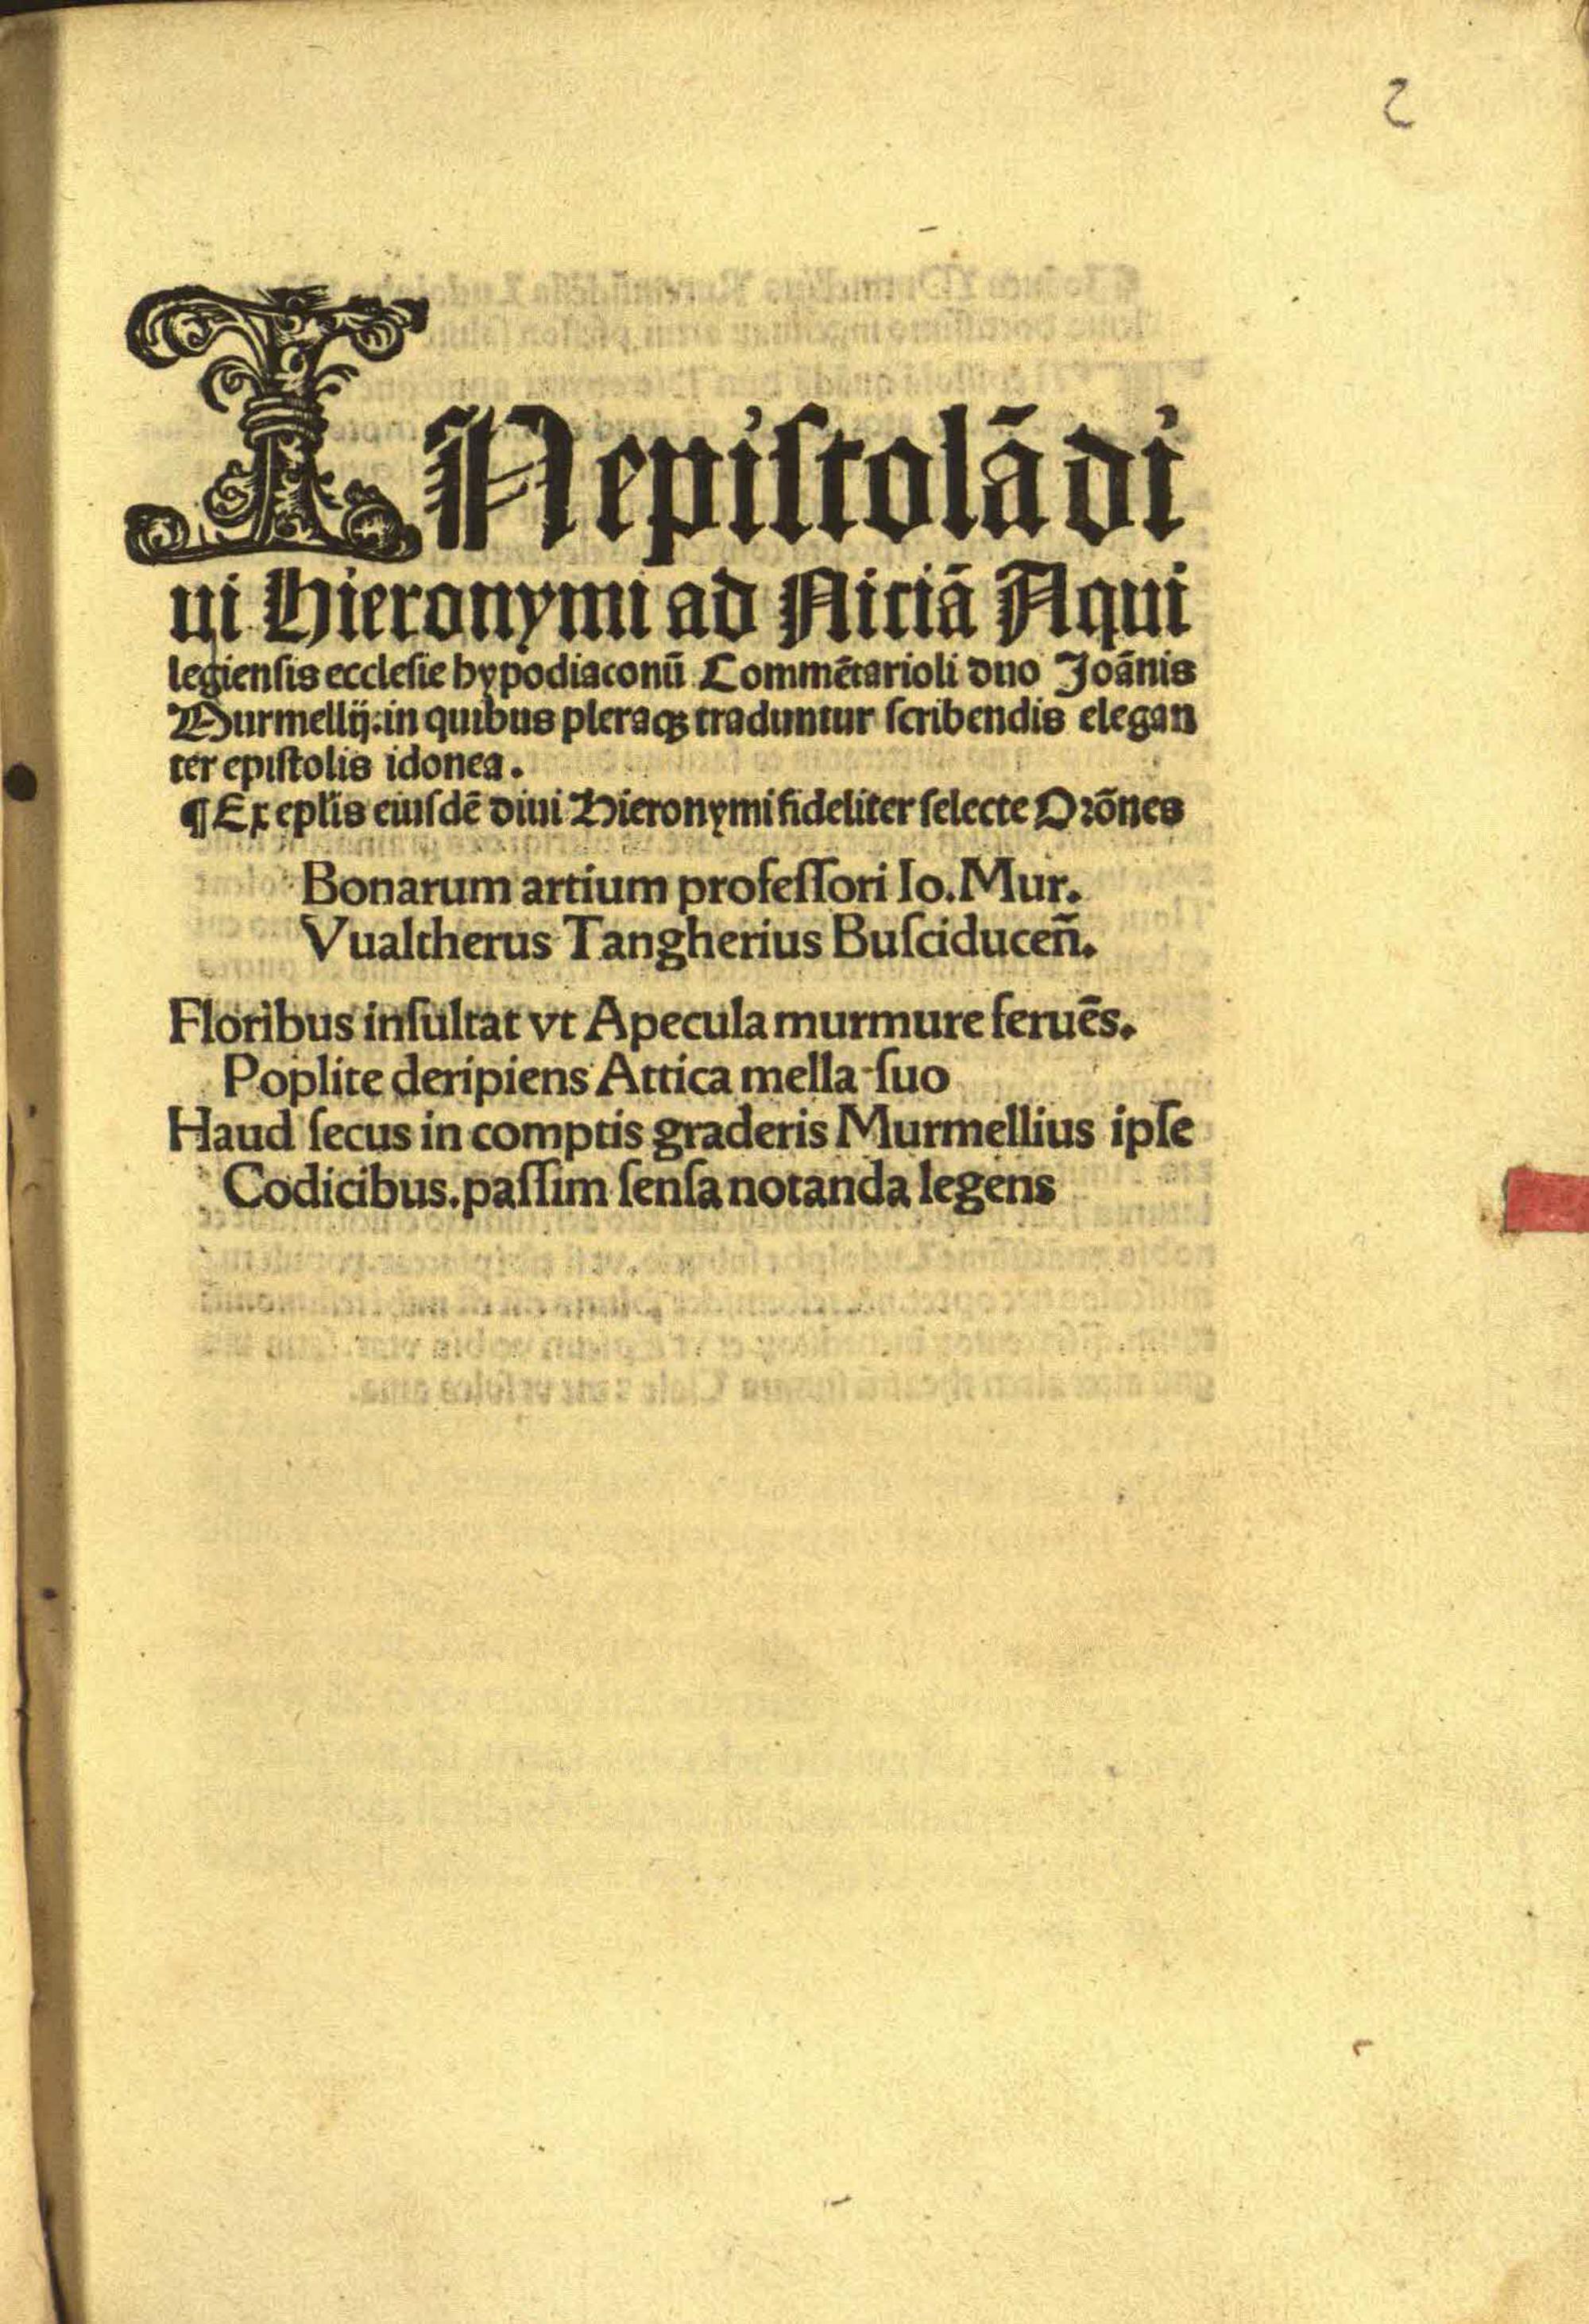 2
IN epiſtolā di
ui Hieronymi ad Niciā Aqui
legienſis eccleſie hypodiaconū Commētarioli duo Joānis
Murmellij: in quibus pleraqꝫ traduntur ſcribendis elegan
ter epiſtolis idonea.
¶ Ex epl'is eiuſdē diui Hieronymi fideliter ſelecte Orōnes
Bonarum artium profeſſori Io. Mur.
Vualtherus Tangherius Buſciduceñ.
Floribus inſultat vt Apecula murmure feruēs.
Poplite deripiens Attica mella ſuo
Haud ſecus in comptis graderis Murmellius ipſe
Codicibus. paſſim ſenſa notanda legens